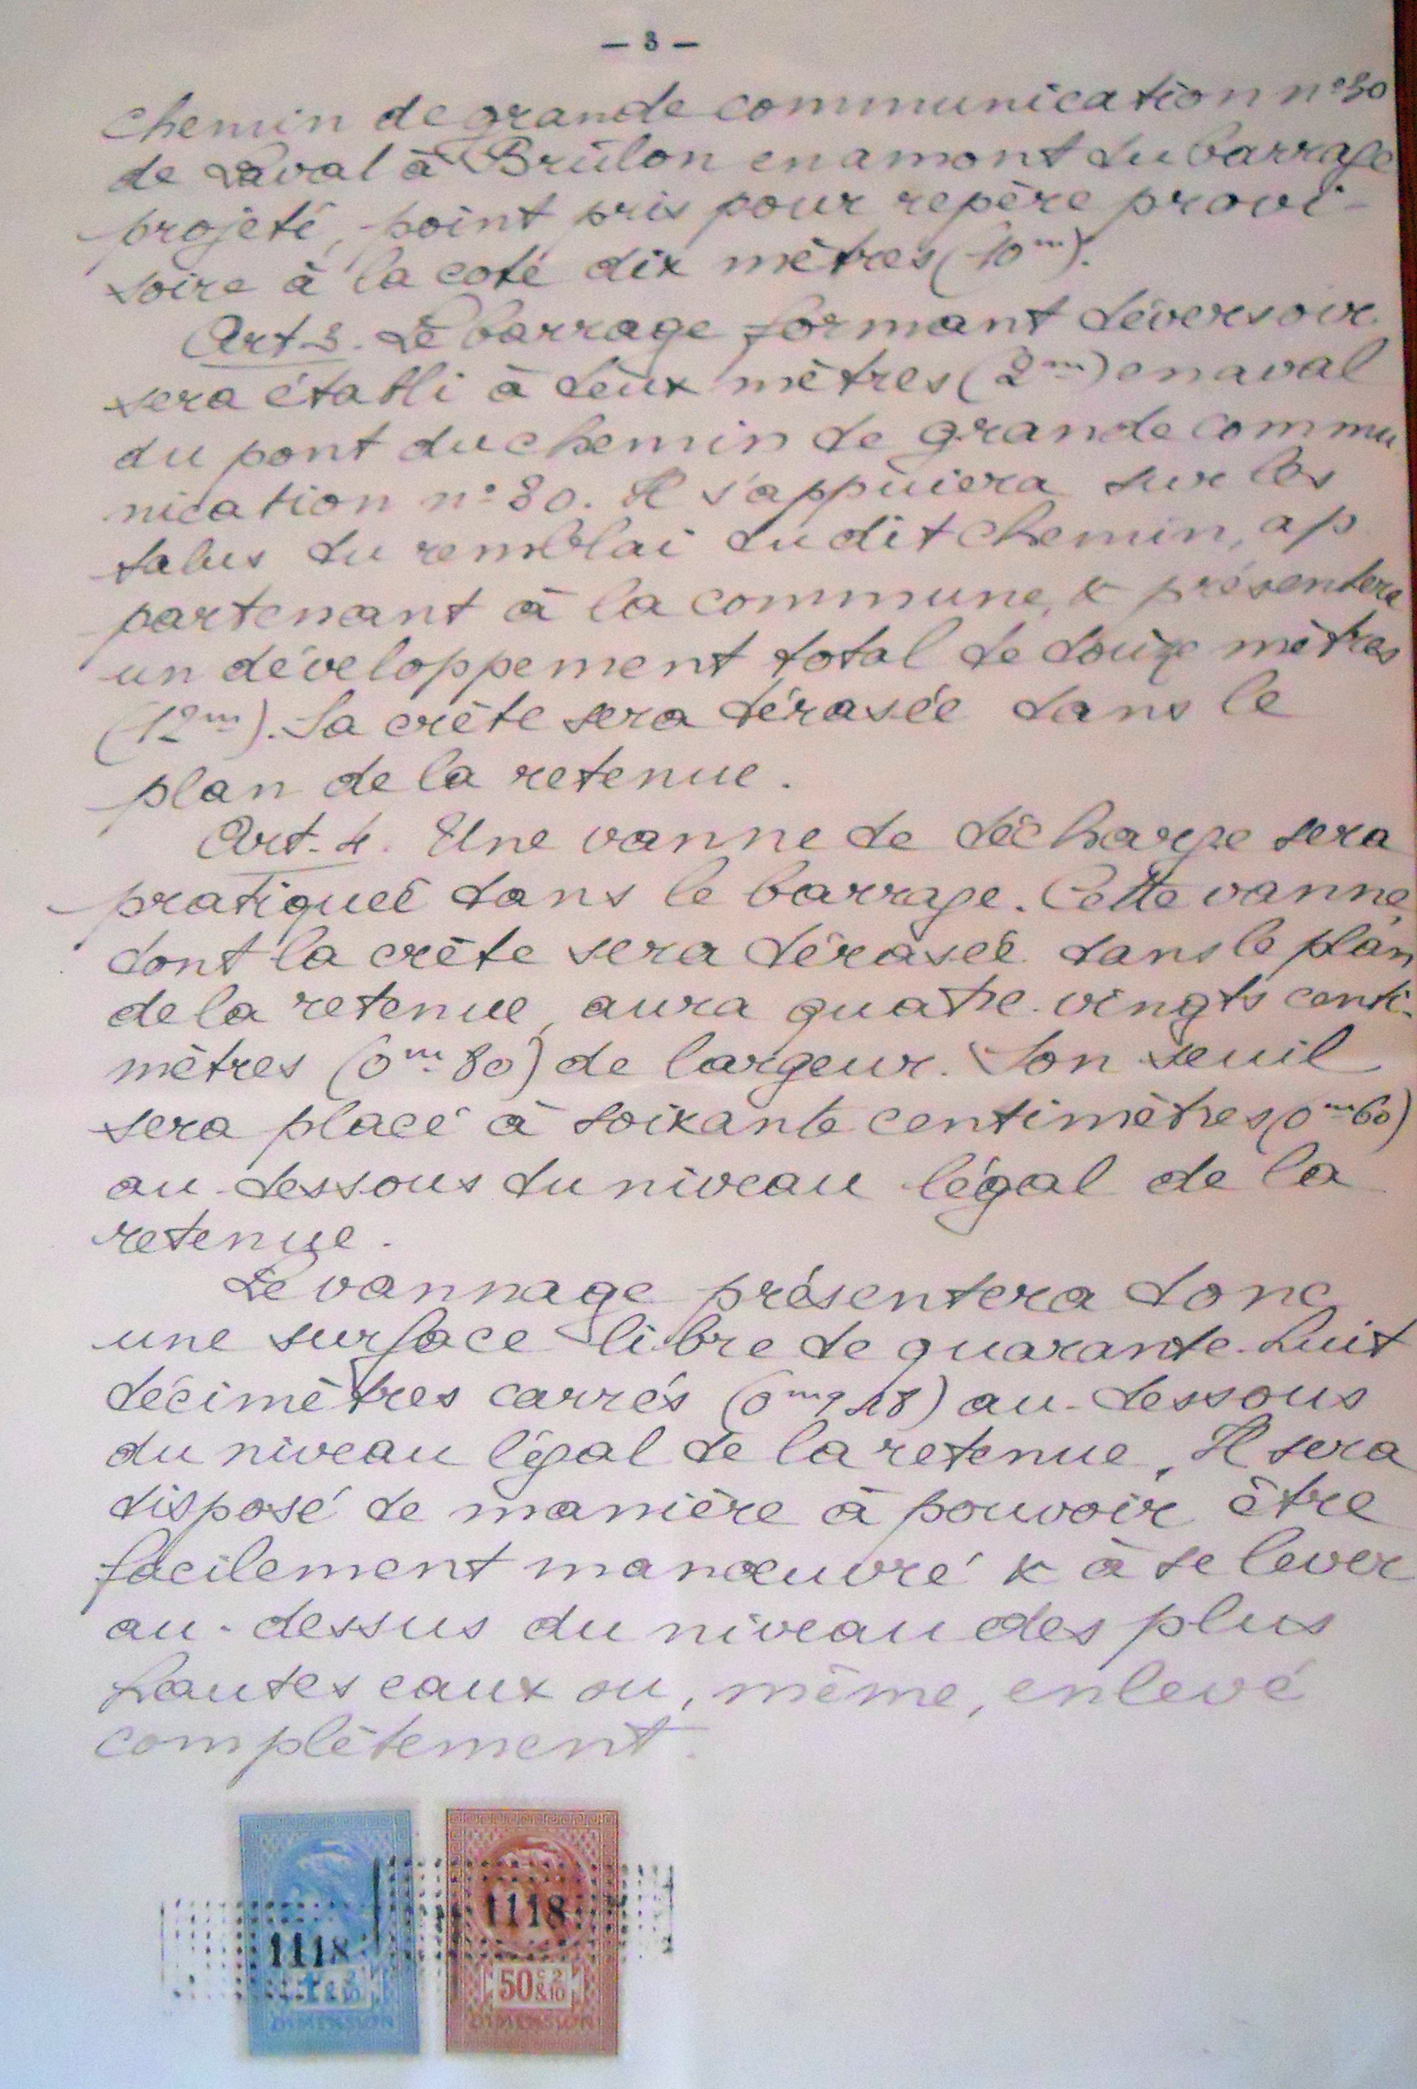 — 3 —
chemin de grande communication n° 30
de Laval à Brûlon en amont du barrage
projeté, point pris pour repère provi-
soire à la cote dix mètres (10 m).
Art. 3. Le barrage formant déversoir
sera établi à deux mètres (2 m) en aval
du pont du chemin de grande commu
nication n° 30. Il s'appuiera sur les
talus du remblai dudit chemin, ap
partenant à la commune, & présentera
un développement total de douze mètres
(12 m). Sa crête sera dérasée dans le
plan de la retenue.
Art. 4. Une vanne de décharge sera
pratiquée dans le barrage. Cette vanne,
dont la crête sera dérasée dans le plan
de la retenue, aura quatre-vingts centi-
mètres (0 m. 80) de largeur. Son seuil
sera placé à soixante centimètres (0 m 60)
au-dessous du niveau légal de la
retenue.
Le vannage présentera donc
une surface libre de quarante-huit
décimètres carrés (0 mq 48) au-dessous
du niveau légal de la retenue. Il sera
disposé de manière à pouvoir être
facilement manœuvré & à se lever
au-dessus du niveau des plus
hautes eaux ou, même, enlevé
complètement.
1118 1118
50 c & 2/10
DIMENSION DIMENSION